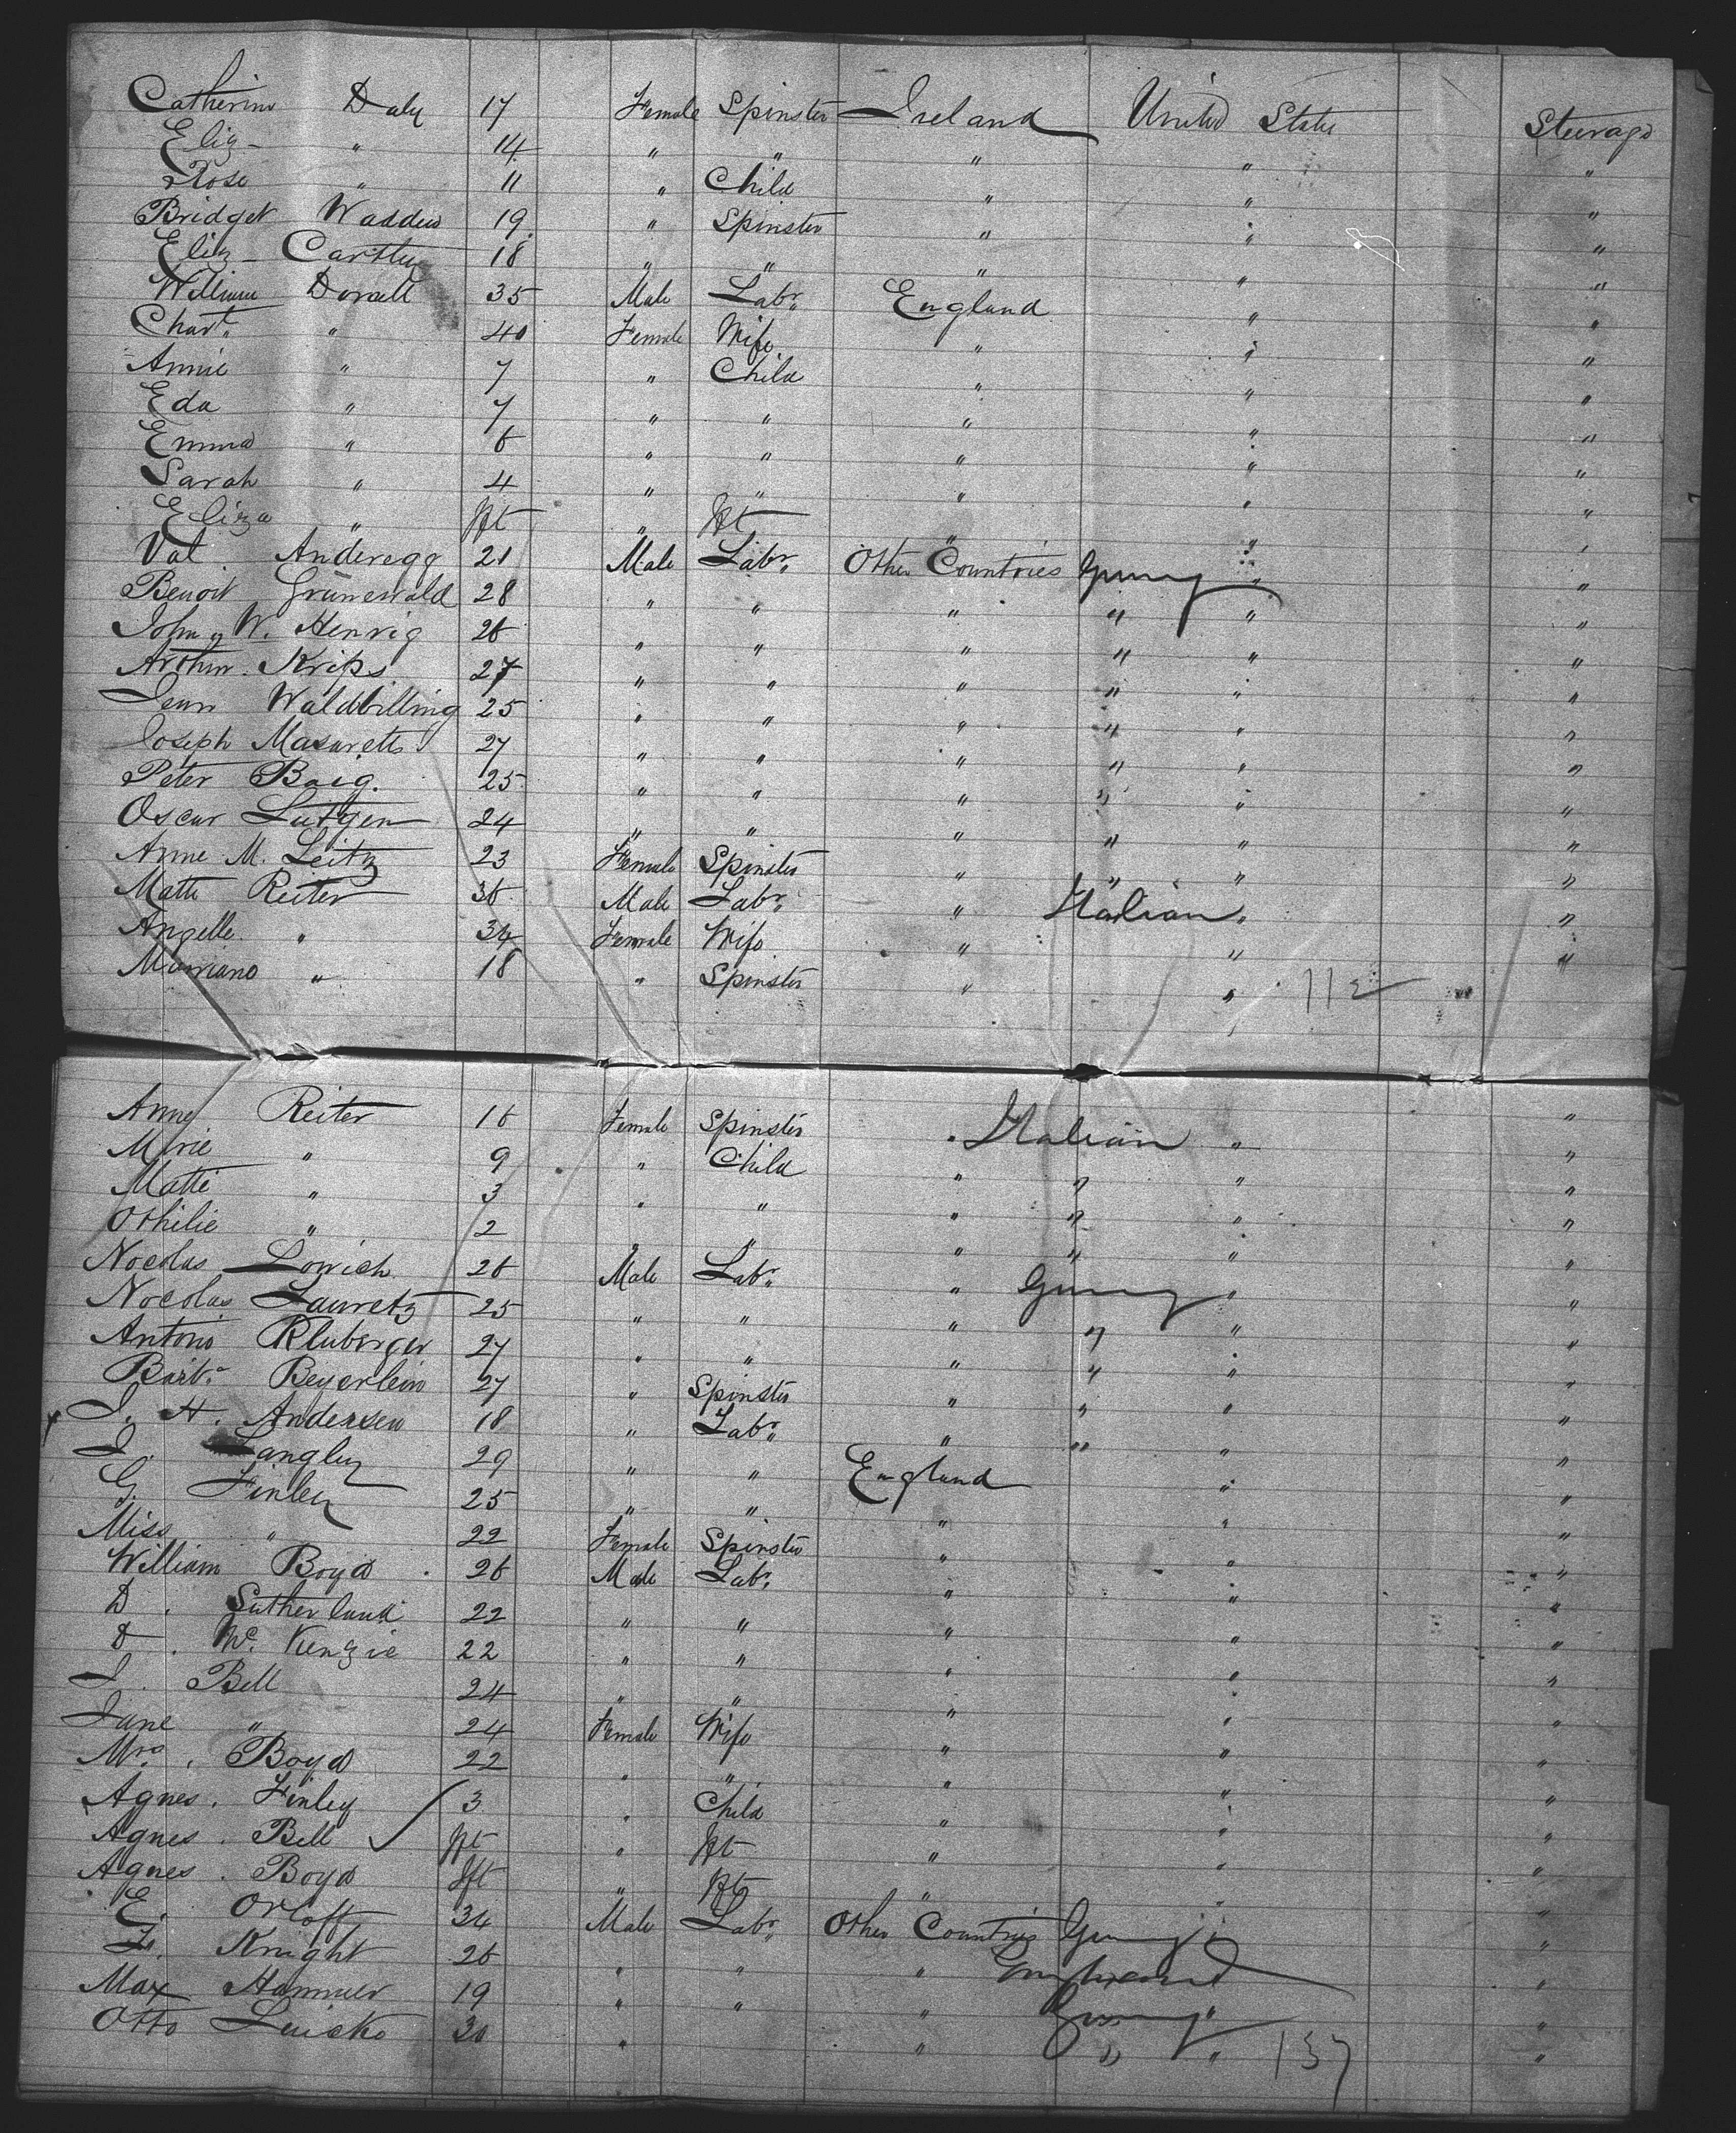 Catherine Daly 17 Female Spinster Ireland United State Steerage
Eliz " 14 " " " " "
Rose " 11 " Child " " "
Bridget Wadden 19 " Spinster " " "
Eliz Carthy 18 " " " " "
William Dorall 35 Male Labr. England " "
Chart. " 40 Female Wife " " "
Annie " 7 " Child " " "
Eda " 7 " " " " "
Emma " 6 " " " " "
Sarah " 4 " " " " "
Eliza " Ift " Ift " " "
Val Anderegg 21 Male Labr. Other Countries Germy " "
Benoit Grunewald 28 " " " " " "
John W. Henrig 26 " " " " " "
Arthur Krips 27 " " " " " "
Jean Waldbilling 25 " " " " " "
Joseph Masaretto 27 " " " " " "
Peter Baig. 25 " " " " " "
Oscar Lutgen 24 " " " " " "
Anne M. Leitz 23 Female Spinster " " " "
Matti Reiter 36 Male Labr. " Italian " "
Angelle " 34 Female Wife " " "
Marriano " 18 " Spinster " " 112
Anny Reiter 16 Female Spinster " Italian " "
Marie " 9 " Child " " " "
Matti " 3 " " " " " "
Othilie " 2 " " " " " "
Nocolas Lowich 26 Male Labr. " Germy " "
Nocolas Lauretz 25 " " " " " "
Antonio Kluberger 27 " " " " " "
Barba Beyerlein 27 " Spinster " " " "
J. H. Andersen 18 " Labr. " " " "
J. Langley 29 " " England " "
G. Finley 25 " " " " "
Miss " 22 Female Spinster " " "
William Boyd 26 Male Labr. " " "
D. Sutherland 22 " " " " "
D. McKenzie 22 " " " " "
J. Bell 24 " " " " "
Jane " 24 Female Wife " " "
Mrs. Boyd 22 " " " " "
Agnes. Finley 3 " Child " " "
Agnes. Bell Ift " Ift " " "
Agnes. Boyd Ift " Ift " " "
E. Orloff 34 Male Labr. Other Countries Germy " "
F. Knight 26 " " " England "
Max Hammer 19 " " " Germy " "
Otto Luicke 30 " " " " 137 "